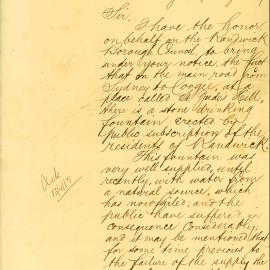 Sir
I have the honor,
on behalf on the Randwick
Borough Council, to bring
under your notice, the fact
that on the main road from
Sydney to Coogee, at a
place called St Judes Hill,
there is a stone drinking
fountain erected by
public subscription of the
residents of Randwick.
This fountain was
very well supplied, until
recently, with water from
a natural source, which
has now failed; and the
public have suffered in
consequence considerably;
and it may be mentioned that
for some time previous to
the failure of the supply the